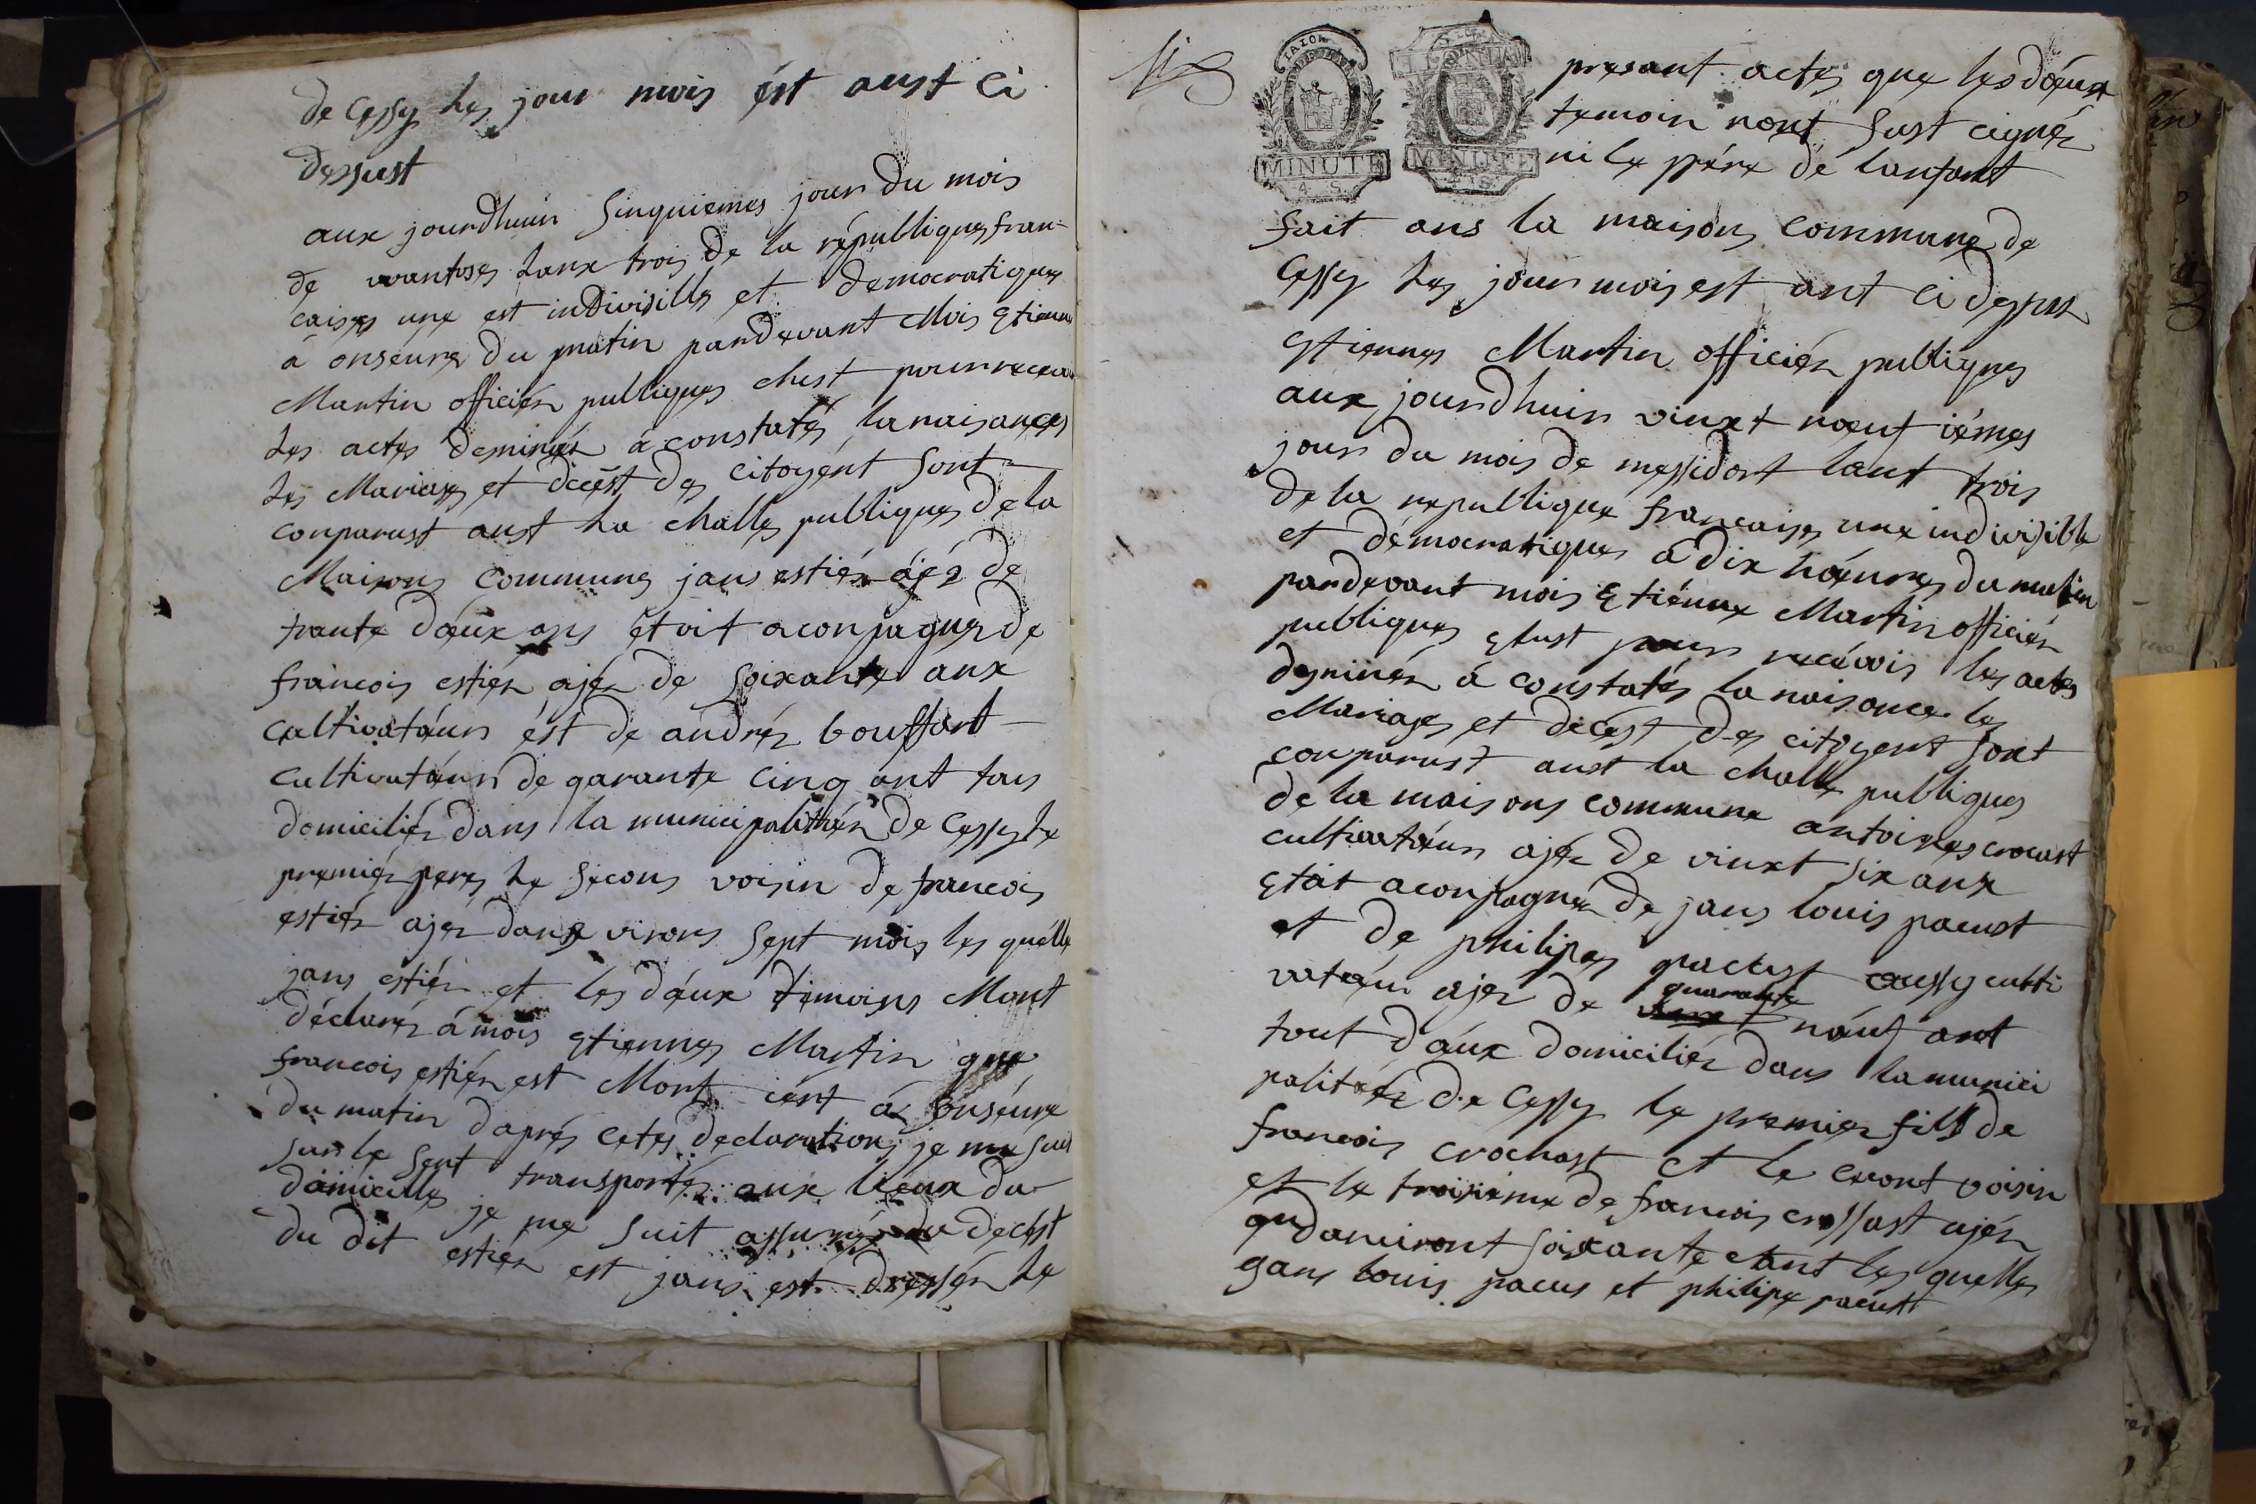 de Cessy les jour mois ést aust Ci
dessust
aux jourdhuin Sinquiemes jour du mois
de vvantoses Lanx trois de la républiques fran-
caises une est indivisills et democratiques
à onseures du matin pardevant Mois Etiennes
Martin officiér publiques elust pour
Les actes desinés à constatés la naisances
Les Mariages et décést des citoyént Sont
conparust aust La challes publiques de la
Maisons Communes jans estiér ajéz de
trante dœux ans état aconpagnez de
francois estiér ajéz de soixante anx
cultivatœurs ést de andréz bouffart
cultivatœurs de qarante cinq ant tous
domiciliéz dans la municipalitéz de Cessy Le
premiér peres Le Secons voisin de francois
estiér ajéz danx virons Sept mois les quélle
jans estiér et les dœux témoins Mont
déclaréz á mois Etiennes Martin que
francois estiér est Mort iért á onséure
du matin daprés cetes declarations je me suis
Sur le Sent transportéz aux lieux du
domicilles je me Suit assuréz du decést
du dit estiér est jans est dresséz Le
six
RAION
MINUTE
4. S.
MINUTE
présant actes que les dœux
temoin nont Sust cignéz
ni le pére dé lanfant
fait ans la maisons Commune de
Cessy Les jour mois est ant ci dessus
Etiennes Martin officiér publiques
aux jourdhuin vinxt nœuf iémes
jour du mois de messidort lanx trois
de la republique francaises une indivisible
et démocratiques á dix hœures du matin
pardevant mois Etiénne Martin officiér
publiques Elust pour recévois les actes
desinéz á constatés la naisances les
Mariages et décést des citoyent Sont
conparust aust la challe publiques
de la maisons commune antoines crocast
cultivatœurs ajéz de vinxt six anx
Etát aconpagnéz de jans louis pacust
et de philipes pacust aussy culti
vatœur ajéz de quarante nœuf ant
tout dœux domiciliéz dans la munici
palitéz de Cessy le premier fils de
francois crochast et le cxont voisin
et le troixiéme de francois crossast ajéz
qudanviront soixante etant les quelles
gans louis pacus et philipe pacust